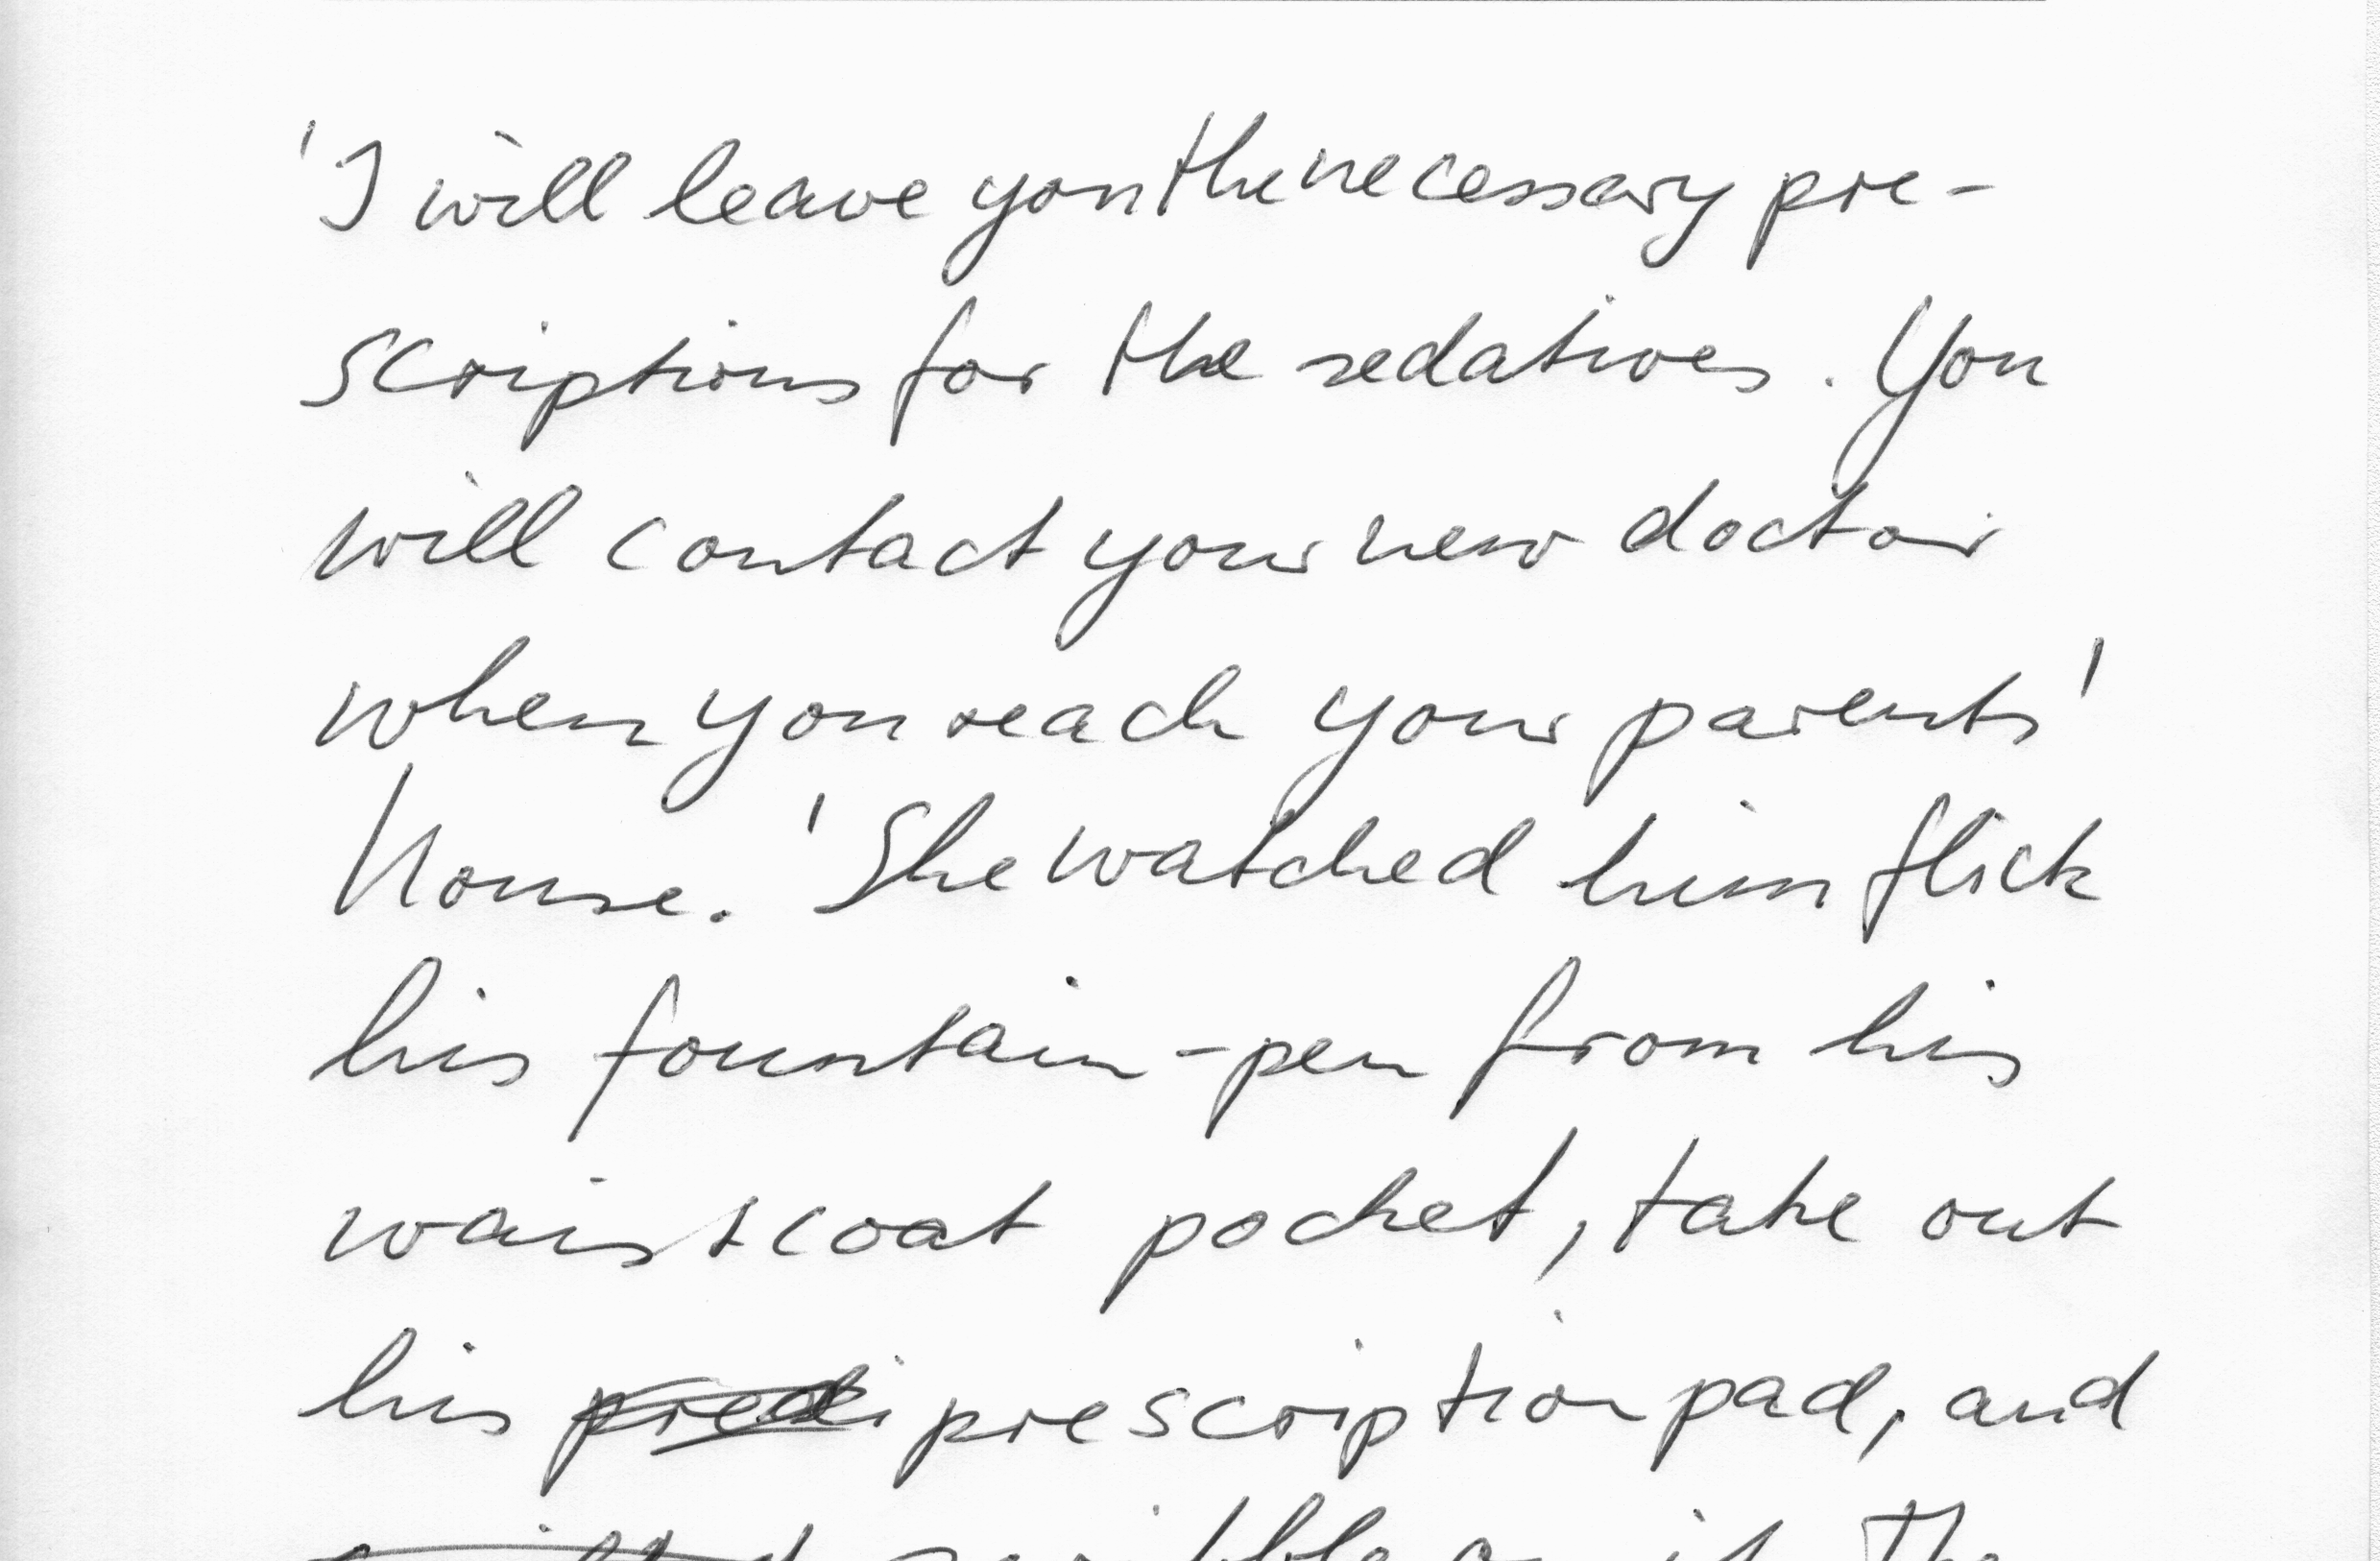 'I will leave you the necessary pre-
scriptions for the sedatives. You
will contact your new doctor
when you reach your parents'
house.' She watched him flick
his fountain-pen from his
waistcoat pocket, take out
his prescription pad, and
scribble on it. The